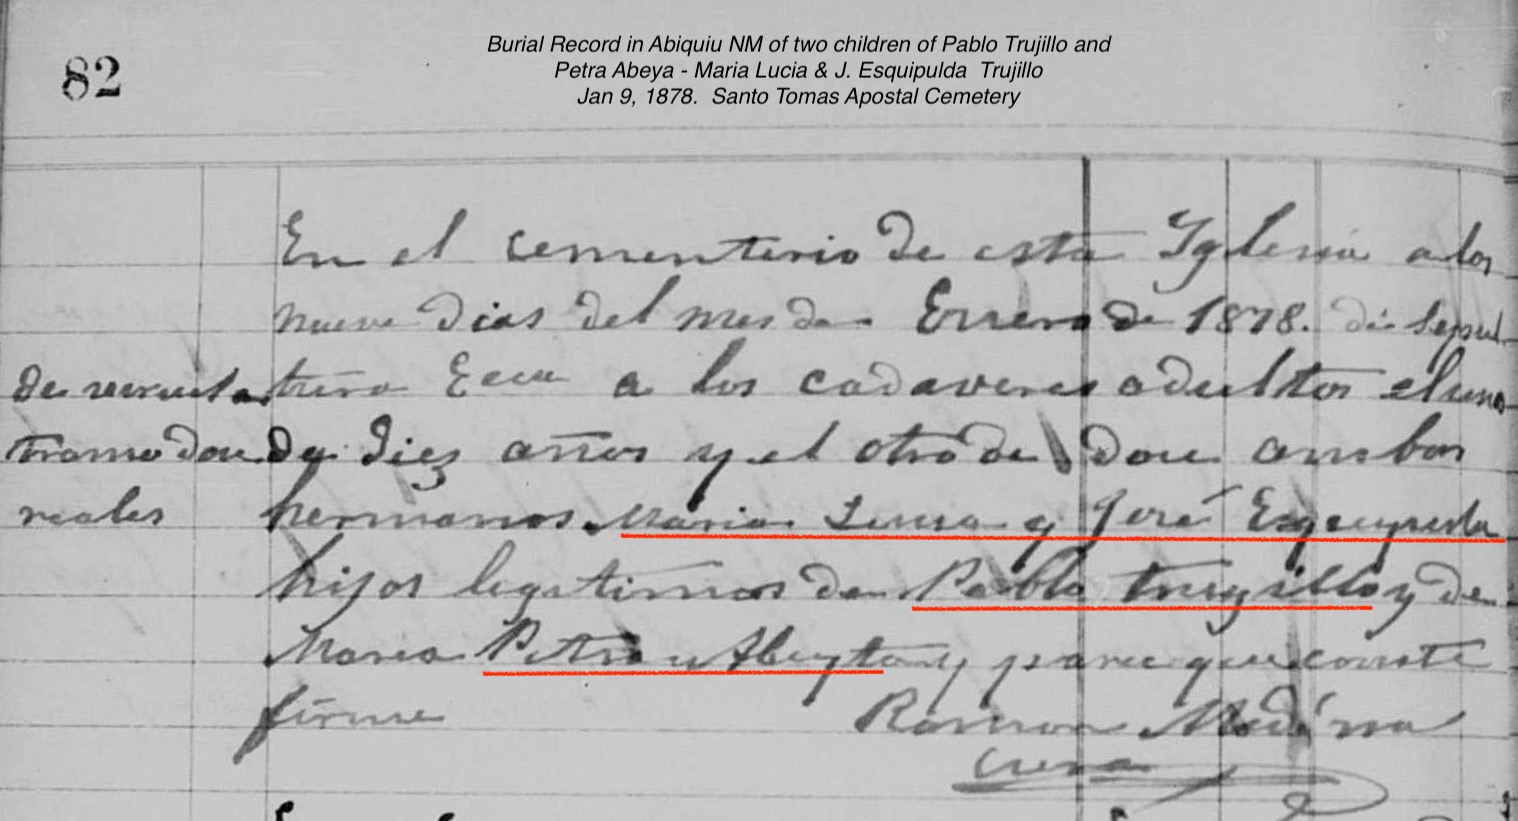 82
Burial Record in Abiquiu NM of two children of Pablo Trujillo and
Petra Abeya - Maria Lucia & J. Esquipulda Trujillo
Jan 9, 1878. Santo Tomas Apostal Cemetery
En el cementerio de esta Iglesia a los
nueve dias del mes de Enero de 1878. di sepul
tura Ecca a los cadaveres adultos el uno
de diez años y el otro de doce ambos
hermanos Maria y José
hijos legitimos de Pablo trugillo y de
Maria Petra Abeyta y para que conste
firme Ramon Medina
Cura
de
reales